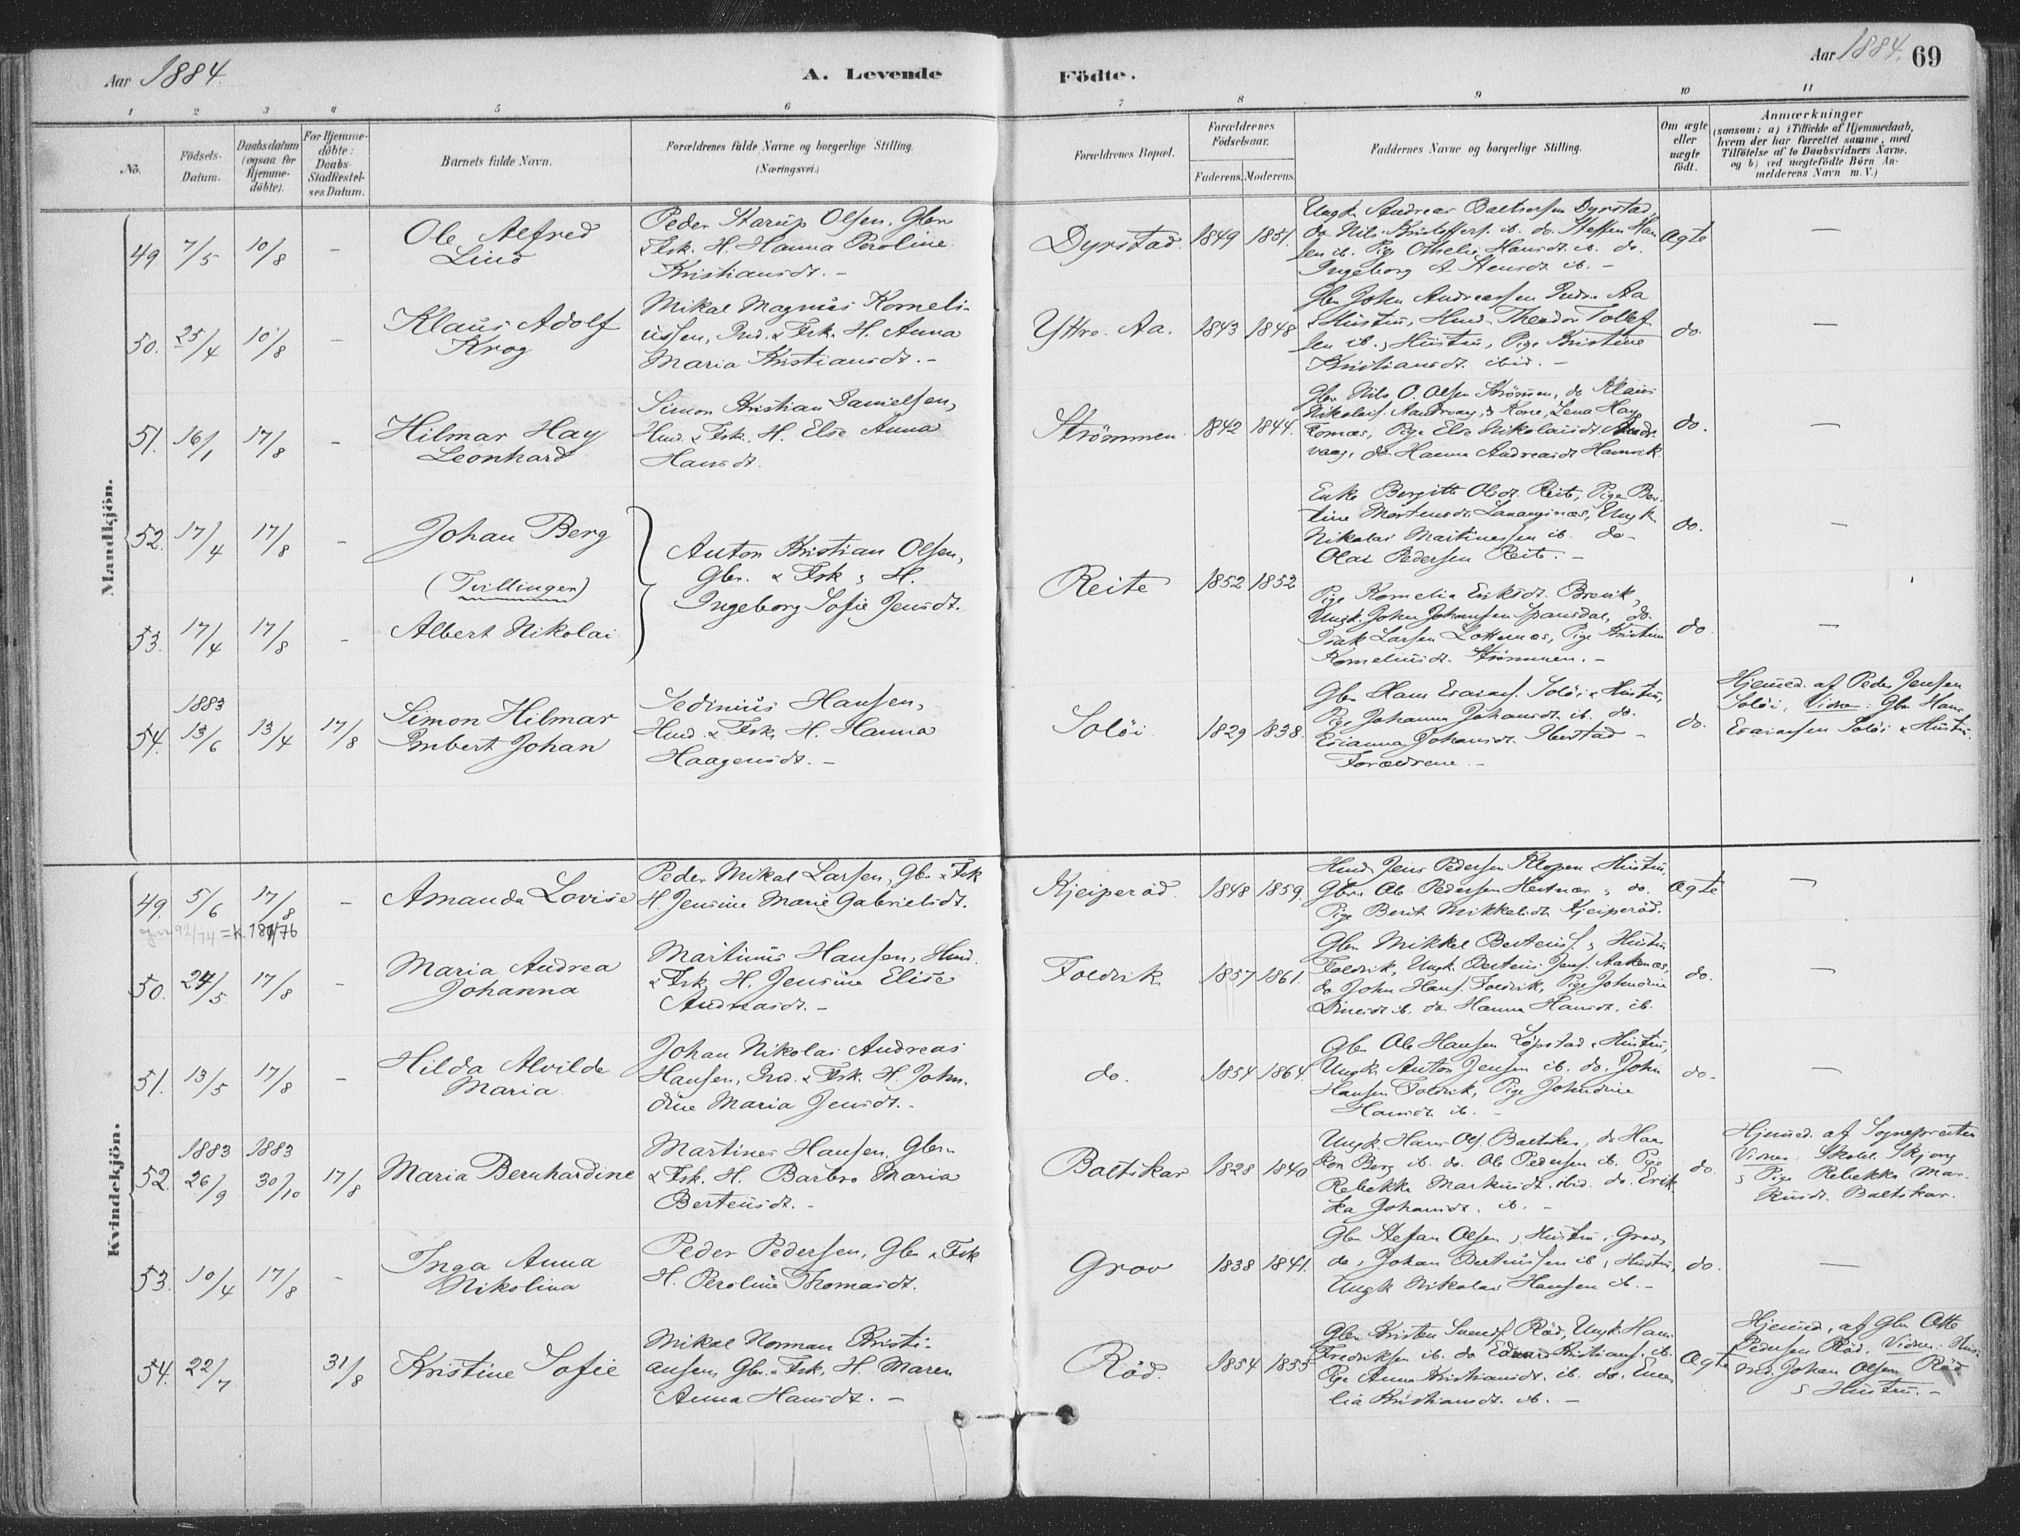 Aar 1884.
A. Levende
Födte.
Aar 1884.
69
1 2 3 4 5 6 7 8 9 10 11
No.
Födsels-
Datum.
Daabsdatum
(ogsaa for
Hjemme-
döbte).
For Hjemme-
döbte:
Daabs-
Stadfæstel-
ses Datum.
Barnets fulde Navn.
Forældrenes fulde Navne og borgerlige Stilling.
(Næringsvei.)
Forældrenes Bopæl.
Forældrenes
Födselsaar.
Faderens. Moderens.
Faddernes Navne og borgerlige Stilling.
Om ægte
eller
uægte
födt.
Anmærkninger
(saasom: a) i Tilfælde af Hjemmedaab,
hvem der har forrettet samme, med
Tilföielse af to Daabsvidners Navne,
og b) ved uægtefödte Börn An-
melderens Navn m. V.)
Mandkjön.
49 7/5 10/8 -
Ole Alfred
Lind
Peder Karup Olsen, Gbr
& Fsk. H. Hanna Peroline
Kristiansdt. -
Dyrstad 1849 1851.
Ungk. Andreas Baltsersen Dyrstad,
do Nils Kristoffers. ib. do. Steffen Han
sen ib. Pige Othelie Hansdt. ib. do.
Ingeborg A Stensdt. ib. -
Ægte
—
50. 25/4 10/8 -
Klaus Adolf
Krog
Mikal Magnus Korneli-
ussen, Ind. & Fsk. H. Anna
Maria Kristiansdt. -
Yttre Aa. 1843 1848
Gbr Johan Andreassen Indre Aa
& Hustru, Husd. Theodor Tollef
sen ib. & Hustru, Pige Kristine
Kristiansdt. ibid. -
do.
—
51. 16/1 17/8 -
Hilmar Hay
Leonhard
Simon Kristian Danielsen,
Husd. & Fsk. H. Else Anna
Hansdt.
Strömmen. 1842 1844.
Gbr Nils O. Olsen Strömmen, do Klaus
Nikolais. & Kone, Lena Hay
Fornæs, Pige Else Nikolaisdt
vaag, do Hanna Andreasdt Hamvik
do.
—
52. 17/4 17/8 -
Johan Berg
(Tvillinger)
Anton Kristian Olsen,
Gbr. & Fsk & H.
Ingeborg Sofie Jensdt.
Reite 1852 1852
Enke Bergitte Olsdt. Reite, Pige Ber-
tine Mortensdt. Ungk
Nikolai Martinussen ib. do-
Olai Pedersen Reite. -
do.
—
53. 17/4 17/8 -
Albert Nikolai
Pige Kornelia Eriksdt. Brevik,
Ungk. Johan Johansen Spansdal, do.
Isak Larsen Lottenæs, Pige Kristine
Korneliusdt. Strömmen. -
do.
—
54. 1883 13/6 13/4 17/8
Simon Hilmar
Imbert Johan
Sedinius Hansen,
Husd. & Fsk. H. Hanna
Haagensdt. -
Solöi 1829 1838.
Gbr Hans Esaias. Solöi & Hustru,
Pige Johanna Johansdt. ib. do.
Esianna Johansdt. Ibestad -
Forældrene. -
do.
Hjemmed. af Peder Jensen
Solöi, Vidner: Gbr Hans
Esaiassen Solöi & Hustru.
Kvindekjön.
49. 5/6 17/8 -
Amanda Lovise
Peder Mikal Larsen, Gbr & Fsk
H Jensine Marie Gabrielsdt.
Kjeiperöd. 1848 1859.
Husd Jens Pedersen Klopen & Hustru,
Gbr. Ole Pedersen Hestnæs & do.
Pige Berit Mikkelsdt Kjeiperöd.
Ægte
—
50. 24/5 17/8 -
Maria Andrea
Johanna
Martinus Hansen, Husd.
& Fsk. H. Jensine Elise
Andreasdt. -
Foldvik 1857 1861.
Gbr Mikkel Bertheus. & Hustru
Foldvik, Ungk. Berteus Jens. Aaknæs,
do John Hans. Foldvik, Pige Johndine
ib. do Hanna Hansdt. ib.
do.
—
51. 13/5 17/8 -
Hilda Alvilde
Maria.
Johan Nikolai Andreas
Hansen, Ind. & Fsk. H. John-
dine Maria Jensdt. -
do. 1854 1864.
Gbr Ole Hansen Löpstad & Hustru,
Ungk. Anton Jensen ib. do. John
Hansen Foldvik, Pige Johndine
Hansdt. ib. -
do-
—
52. 1883 26/9 1883 30/10 17/8
Maria Bernhardine
Martines Hansen, Gbr.
& Fsk. H. Barbro Maria
Berteusdt. -
Baltskar 1828 1840
Ungk Hans Ols. Baltskar, do Haa-
kon Berg ib. do. Ole Pedersen ib. Pige
Rebekka Markusdt. ibid. do. Erik-
ka Johansdt. ib. -
do.
Hjemmed. af Sognepresten
Vidner: Skolel. Skjong
& Pige Rebekka Mar-
kusdt. Baltskar.
53. 10/4 17/8 -
Inga Anna
Nikolina
Peder Pedersen, Gbr & Fsk
H. Peroline Thomasdt.
Grov 1838 1841.
Gbr Stefan Olsen & Hustru, Grov,
do, Johan Berteussen ib & Hustru,
Ungk Nikolai Hansen ib. -
do.
—
54. 22/7 31/8
Kristine Sofie
Mikal Norman Kristi-
ansen, Gbr. & Fsk. H. Maren
Anna Hansdt. -
Röd. 1854 1855
Gbr Kristen Svends. Röd, Ungk Hans
Fredriksen ib. do Edvard Kristians. ib.
Pige Anna Kristiansdt. ib. do.
lia Kristiansdt. ib. -
Ægte
Hjemmed. af Gbr Otte
Pedersen Röd. Vidner: Hus-
md. Johan Olsen Röd
& Hustru. -